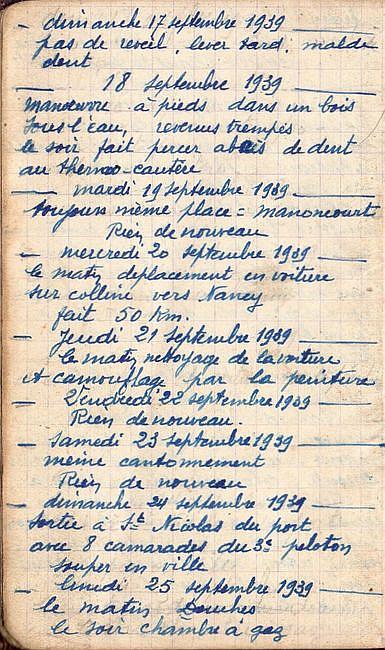 — dimanche 17 septembre 1939 —
pas de reveil, lever tard, mal de
dent
— 18 septembre 1939 —
Manoeuvre à pieds dans un bois
sous l'eau, revenus trempés
le soir fait percer abcès de dent
au thermo-cautère
— mardi 19 septembre 1939 —
toujours même place = Manoncourt
Rien de nouveau
— mercredi 20 septembre 1939 —
le matin deplacement en voiture
sur colline vers Nancy
fait 50 Km.
— Jeudi 21 septembre 1939 —
le matin nettoyage de la voiture
et camouflage par la peinture
— Vendredi 22 septembre 1939 —
Rien de nouveau.
— Samedi 23 septembre 1939 —
meme cantonnement
Rien de nouveau
— dimanche 24 septembre 1939 —
Sortie à St Nicolas du port
avec 8 camarades du 3e peloton
souper en ville
— lundi 25 septembre 1939 —
le matin Douches
le soir chambre à gaz